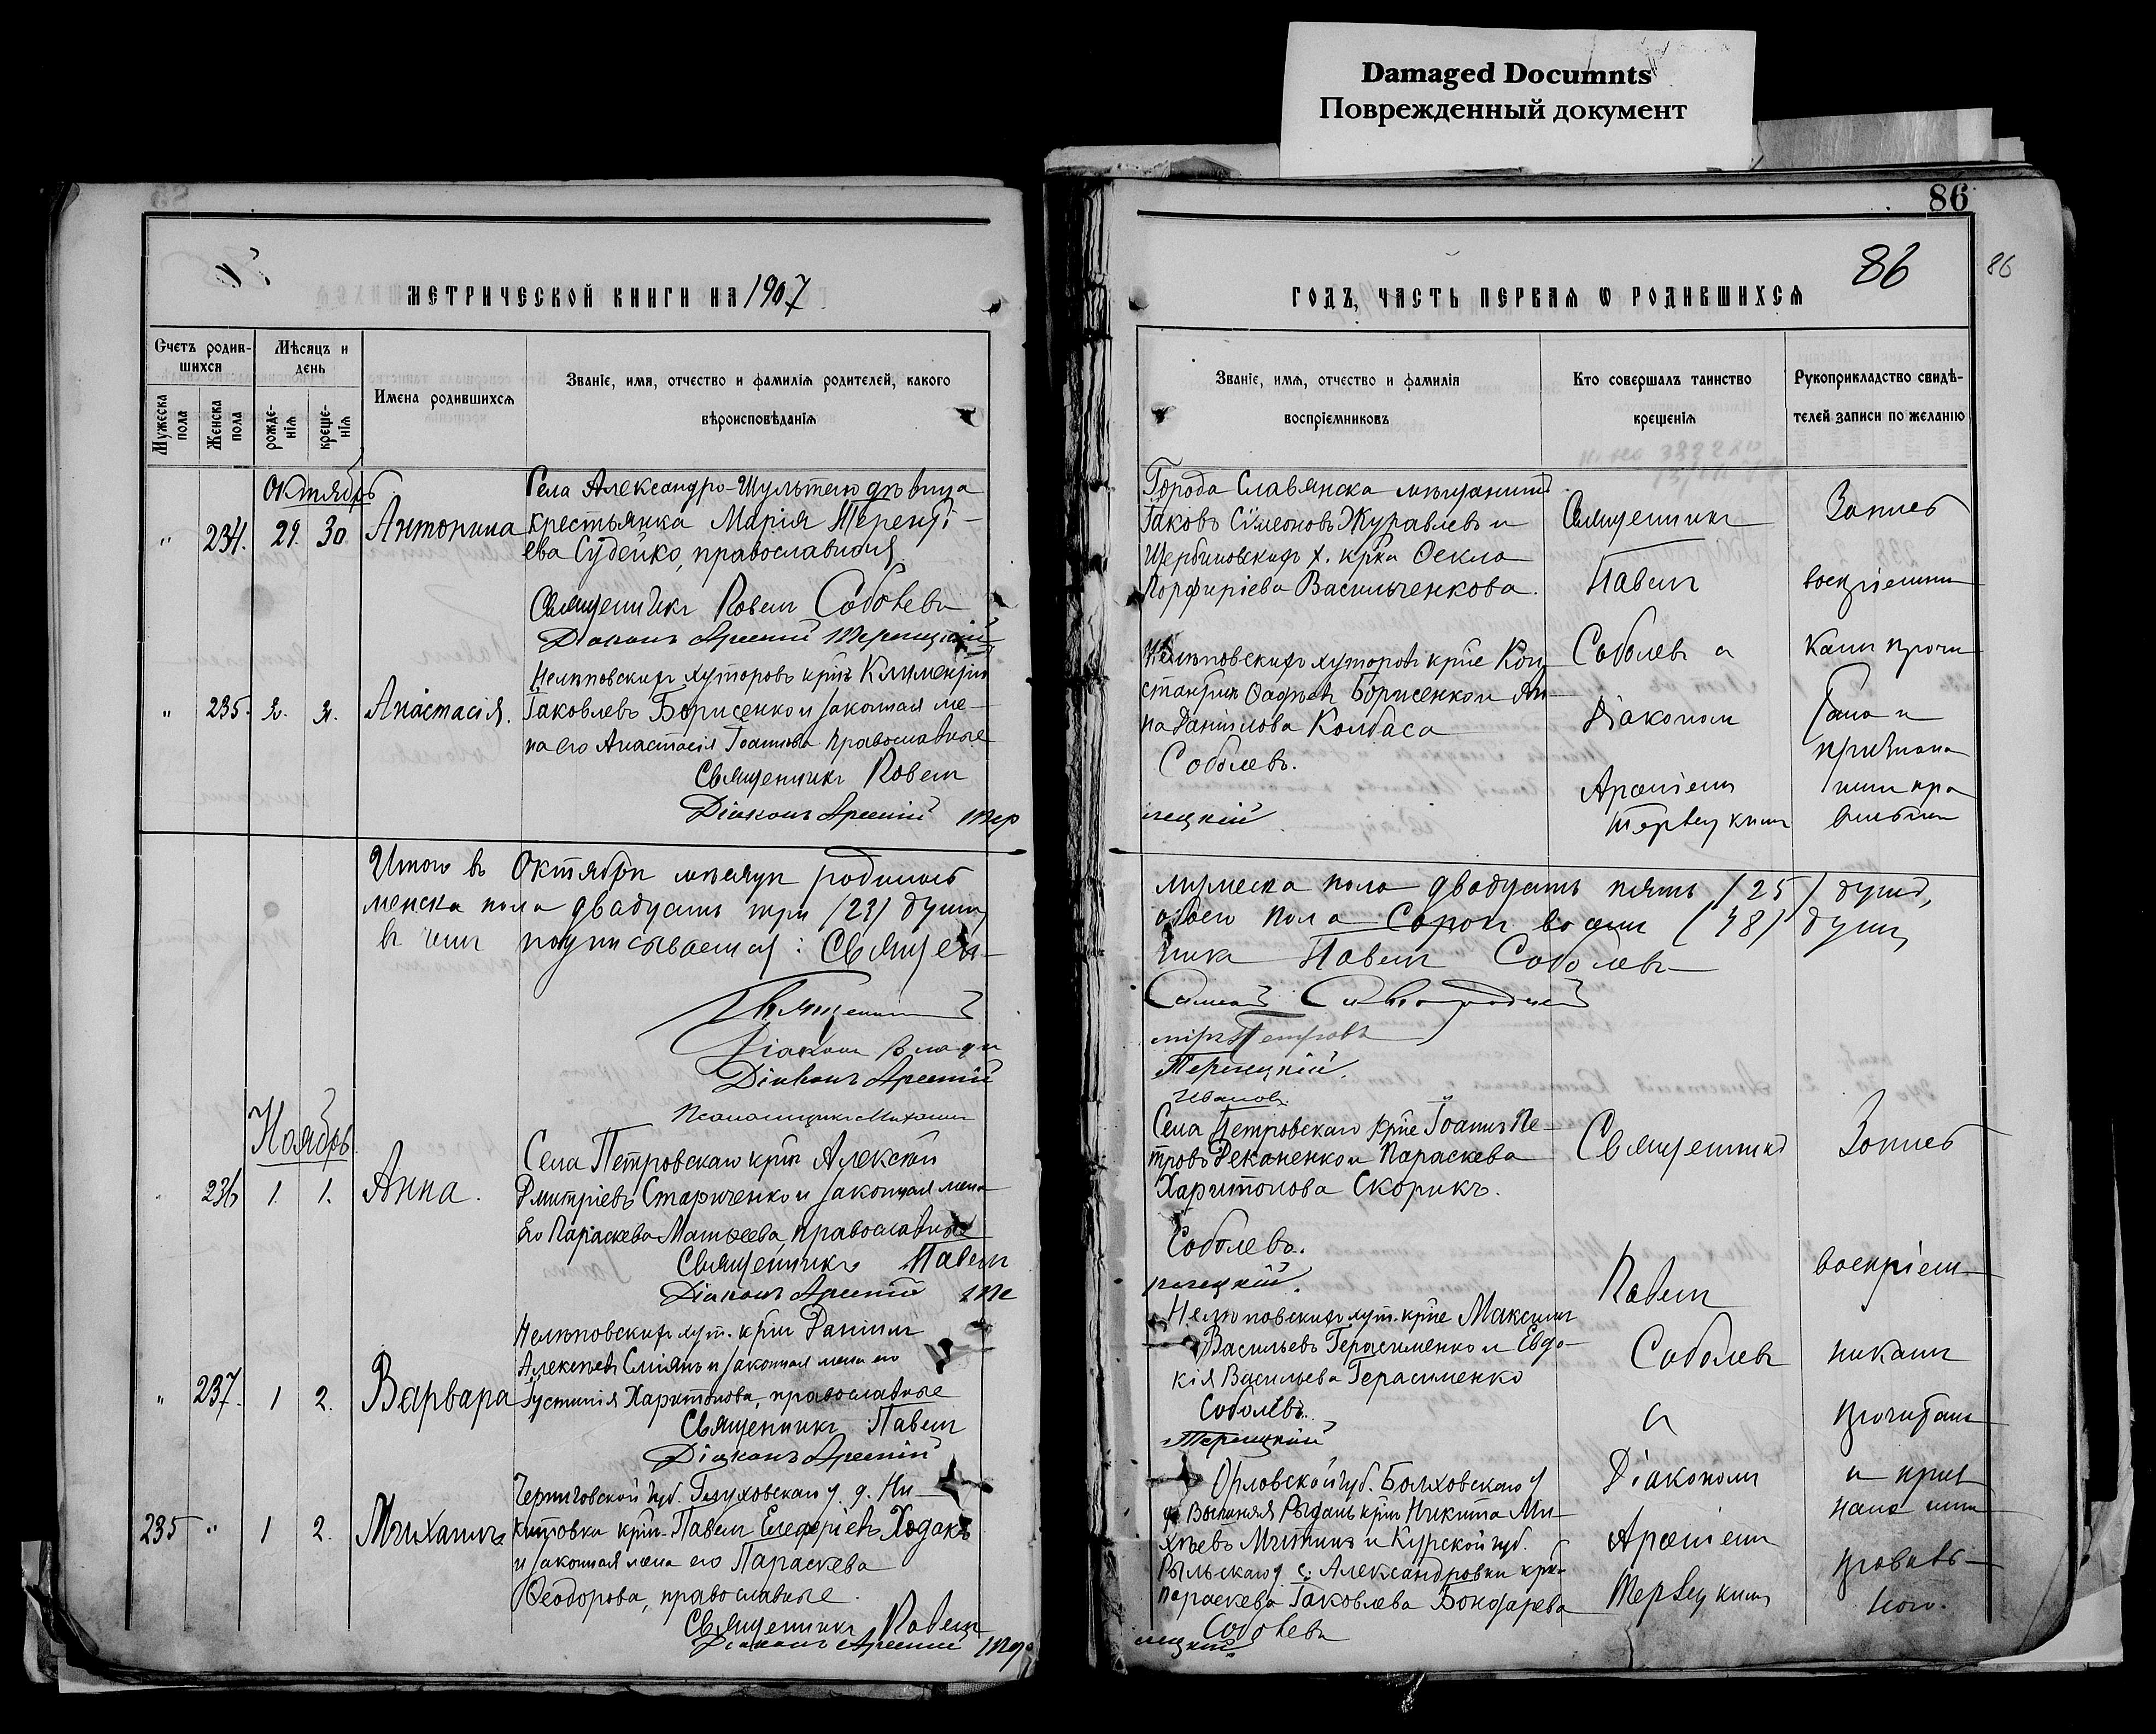 Damaged Documnts
Поврежденный документ
86
86
86
МЕТРИЧЕСКОЙ КНИГИ НА 1907
ГОДЪ, ЧАСТЬ ПЕРВАЯ Ѡ РОДИВШИХСЯ
Счетъ родив-
шихся
Мужеска пола
Женска пола
Мѣсяцъ и
день
рожде-
нія
креще-
нія
Имена родившихся
Званіе, имя, отчество и фамилія родителей, какого
вѣроисповѣданія
Званіе, имя, отчество и фамилія
воспріемниковъ
Кто совершалъ таинство
крещенія
Рукоприкладство свидѣ-
телей записи по желанію
Октябрь
„ 234. 29. 30 Антонина
Села Александро-Шультено дѣвица
крестьянка Марія Теренті-
ева Судейко, православная.
Священникъ Павелъ Соболевъ
Діаконъ Арсеній Терлецкій
Города Славянска мѣщанинъ
Іаковъ Сімеоновъ Журавлевъ и
Щербиновскихъ х. крка Ѳекла
Порфиріева Васильченкова.
Священникъ
Павелъ
Соболевъ съ
Діакономъ
Арсеніемъ
Терлецкимъ
Запись
воспріемни
камъ прочи
тана и
признана
ими пра
вильною
„ 235. Анастасія.
Нелѣповскихъ хуторовъ крнъ Климентій
Іаковлевъ Борисенко и законная же-
на его Анастасія Іоаннова православные
Священникъ Павелъ
Діаконъ Арсеній Тер
Нелѣповскихъ хуторовъ крне Кон-
стантинъ Борисенко и Ан-
на Даніилова Колбаса
Соболевъ.
лецкій
Итого въ Октябрѣ мѣсяцѣ родилось
женска пола двадцать три (23) души
въ чемъ подписываемся: Священ-
Священникъ
Діаконъ Влади
Діаконъ Арсеній
Псаломщикъ Михаилъ
мужеска пола двадцать пять (25) душъ,
обоего пола Сорокъ восемь (48) душъ,
никъ Павелъ Соболевъ
міръ Петровъ
Терлецкій.
Ивановъ
Ноябрь
236 1. 1. Анна.
Села Петровскаго крнъ Алексѣй
Дмитріевъ Стариченко и законная жена
его Параскева Матѳеева православные
Священникъ Павелъ
Діаконъ Арсеній Те
Села Петровскаго крне Іоаннъ Пе-
тровъ Деканенко и Параскева
Харитонова Скорикъ.
Соболевъ.
рлецкій.
Священникъ
Павелъ
Соболевъ
съ
Діакономъ
Арсеніемъ
Терлецкимъ
Запись
воспріем-
никамъ
прочитана
и приз
нана ими
правиль-
ною.
„ 237. 1 2. Варвара
Нелѣповскихъ хут. крнъ Даніилъ
Алексѣевъ Сміянъ и законная жена его
Іустинія Харитонова, православные
Священникъ Павелъ
Діаконъ Арсеній
Нелѣповскихъ хут. крне Максимъ
Васильевъ Герасименко и Евдо-
кія Васильева Герасименко
Соболевъ.
Терлецкій
235 „ 1 2. Михаилъ
Черниговской губ. Глуховскаго у. д. Ни-
китовка крнъ Павелъ Елеѳріевъ Ходакъ
и законная жена его Параскева
Ѳеодорова, православные.
Священникъ Павелъ
Діаконъ Арсеній Тер
Орловской губ. Болховскаго у
Рыдань крнъ Никита Ми-
хѣевъ Митинъ и Курской губ.
Рыльскаго у. с. Александровки крка
Параскева Іаковлева Бондарева
Соболевъ
лецкій.